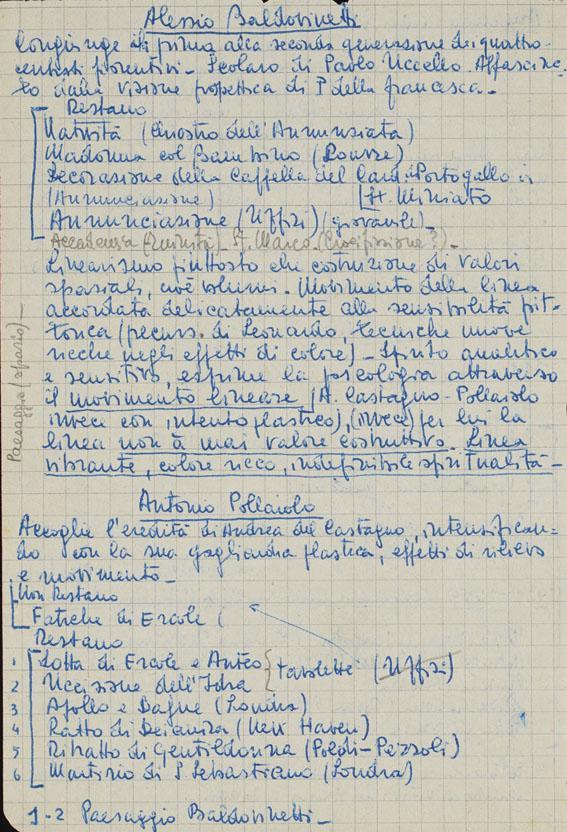 Alessio Baldovinetti
Congiunge la prima alla seconda generazione dei quattro-
centisti fiorentini - Scolaro di Paolo Uccello. Affascina-
to dalla visione prospettica di P della Francesca -
Restano
Natività (Chiostro dell'Annunziata)
Madonna col Bambino (Louvre)
Decorazione della Cappella del Card. Portogallo in
(Annunciazione) S. Miniato
Annunciazione (Uffizi) (giovanile) -
Accademia (Trinità) S. Marco (Crocifissione?) -
Linearismo piuttosto che costruzione di valori
spaziali, cioè volumi. Movimento della linea
accordata delicatamente alla sensibilità pit-
torica (precurs. di Leonardo, tecniche nuove
ricche negli effetti di colore) - Spirito analitico
e sensitivo, esprime la psicologia attraverso
il movimento lineare (A. Castagno - Pollaiolo
invece con intento plastico), (invece) per lui la
linea non à mai valore costruttivo. Linea
vibrante, colore ricco, indefinibile spiritualità -
Paesaggio (spazio) -
Antonio Pollaiolo
Accoglie l'eredità di Andrea del Castagno, intensifican-
do con la sua gagliardia plastica, effetti di rilievo
e movimento -
Non Restano
Fatiche di Ercole (
Restano
1 Lotta di Ercole e Anteo } tavolette (Uffizi)
2 Uccisione dell'Idra
3 Apollo e Dafne (Londra)
4 Ratto di Deianira (New Haven)
5 Ritratto di Gentildonna (Poldi-Pezzoli)
6 Martirio di S Sebastiano (Londra)
1-2 Paesaggio Baldovinetti -